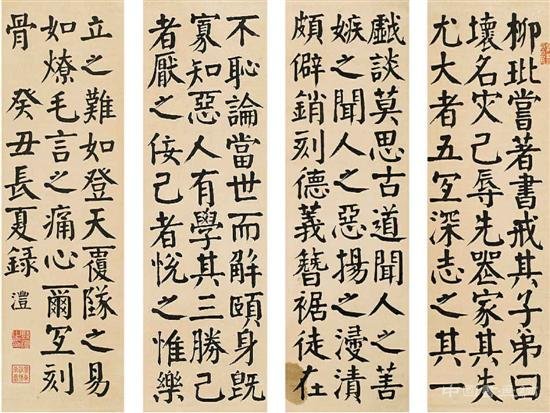 柳玭嘗著書戒其子弟曰
壞名灾己辱先喪家其失
尤大者五宜深志之其一
戲談莫思古道聞人之善
嫉之聞人之惡揚之浸漬
頗僻銷刻德義簪裾徒在
不恥論當世而解頤身既
寡知惡人有學其三勝己
者厭之佞己者悅之惟樂
立之難如登天覆隊之易
如燎毛言之痛心爾宜刻
骨 癸丑長夏錄 澧